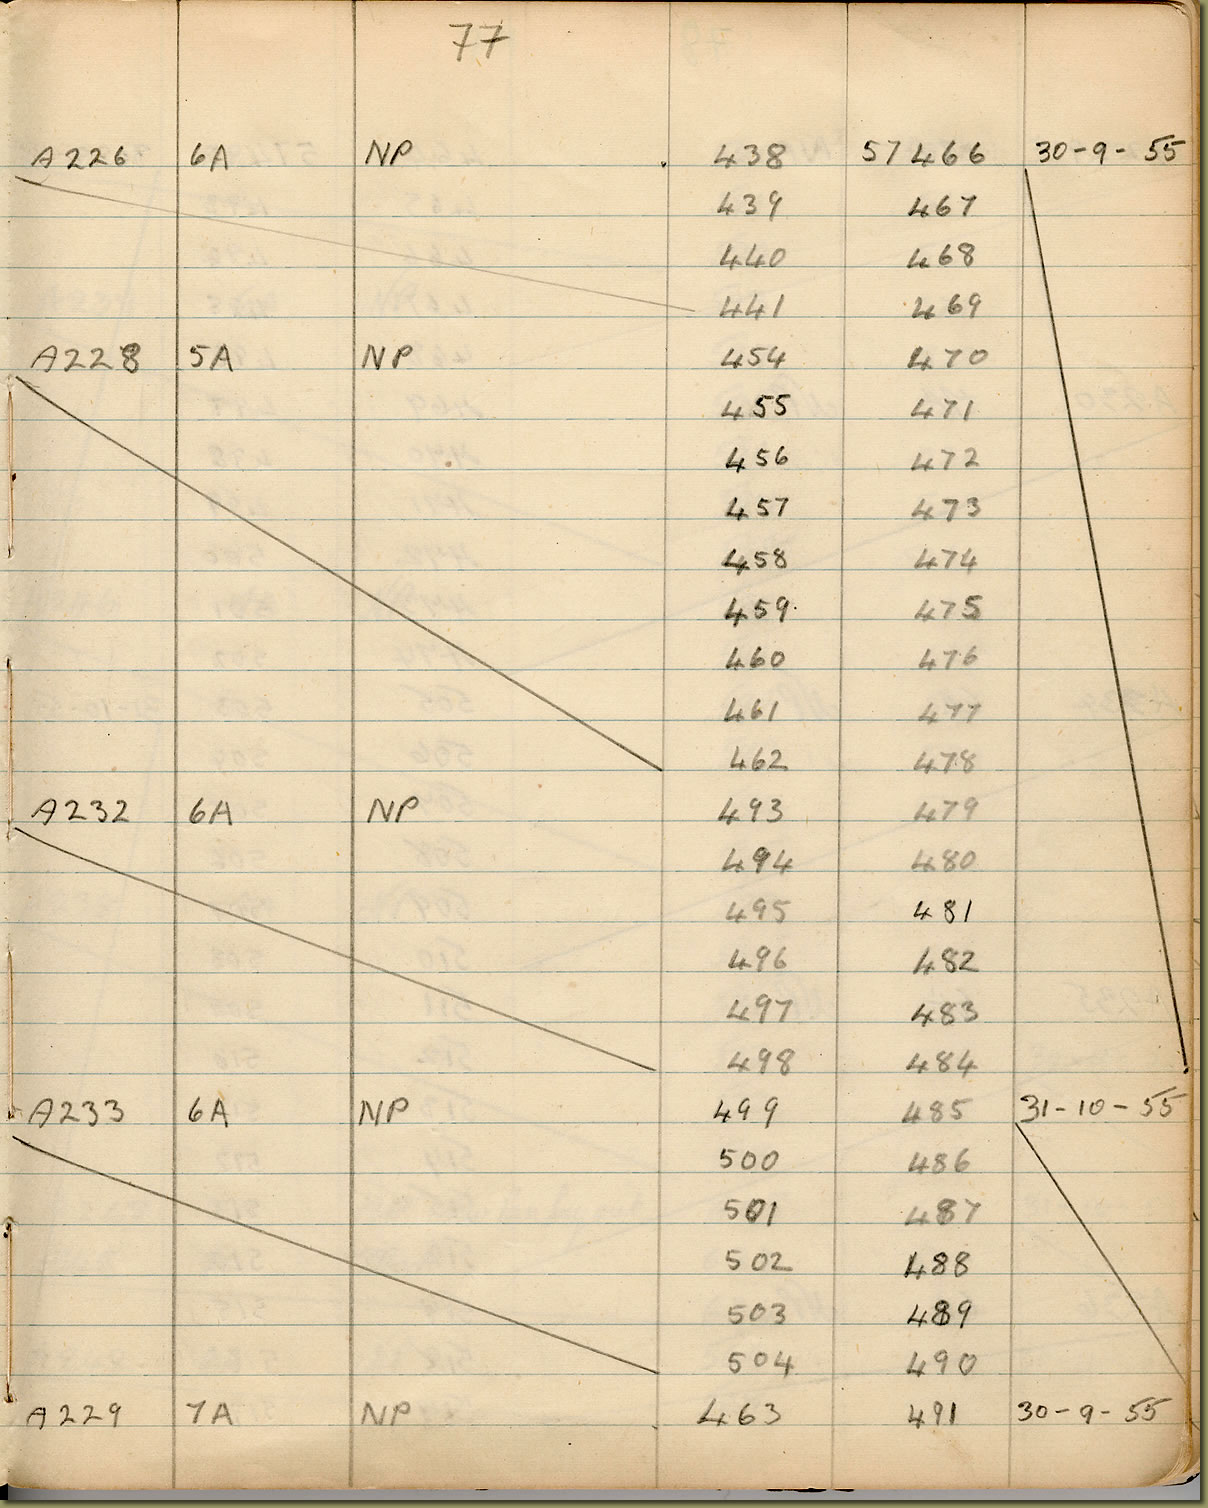 77
A226 6A NP 438 57466 30-9-55
439 467
440 468
441 469
A228 5A NP 454 470
455 471
456 472
457 473
458 474
459 475
460 476
461 477
462 478
A232 6A NP 493 479
494 480
495 481
496 482
497 483
498 484
A233 6A NP 499 485 31-10-55
500 486
501 487
502 488
503 489
504 490
A229 7A NP 463 491 30-9-55